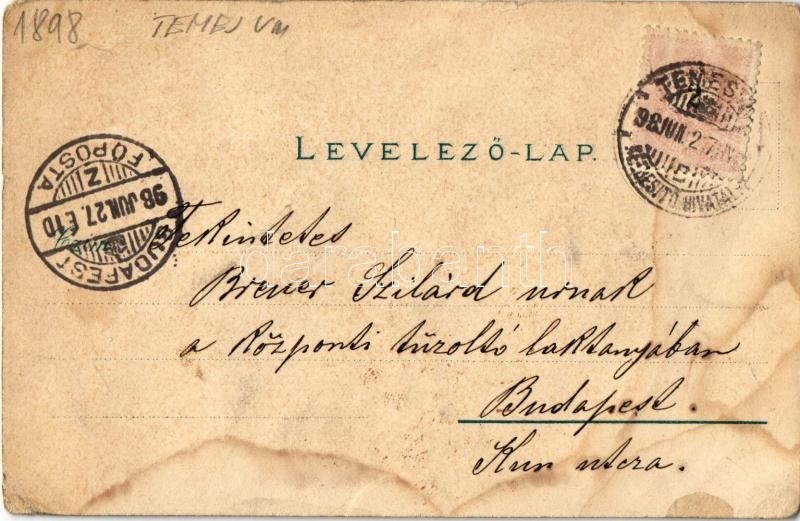 1898 TEMES VM
LEVELEZŐ-LAP.
BUDAPEST
98 JUN.27. E 10
FŐPOSTA
Z
TEMES
98 JUN. 2
Czim
Tekintetes
Breuer Szilárd urnak
a központi tűzoltó laktanyában
Budapest.
Kun utcza.
darabanth